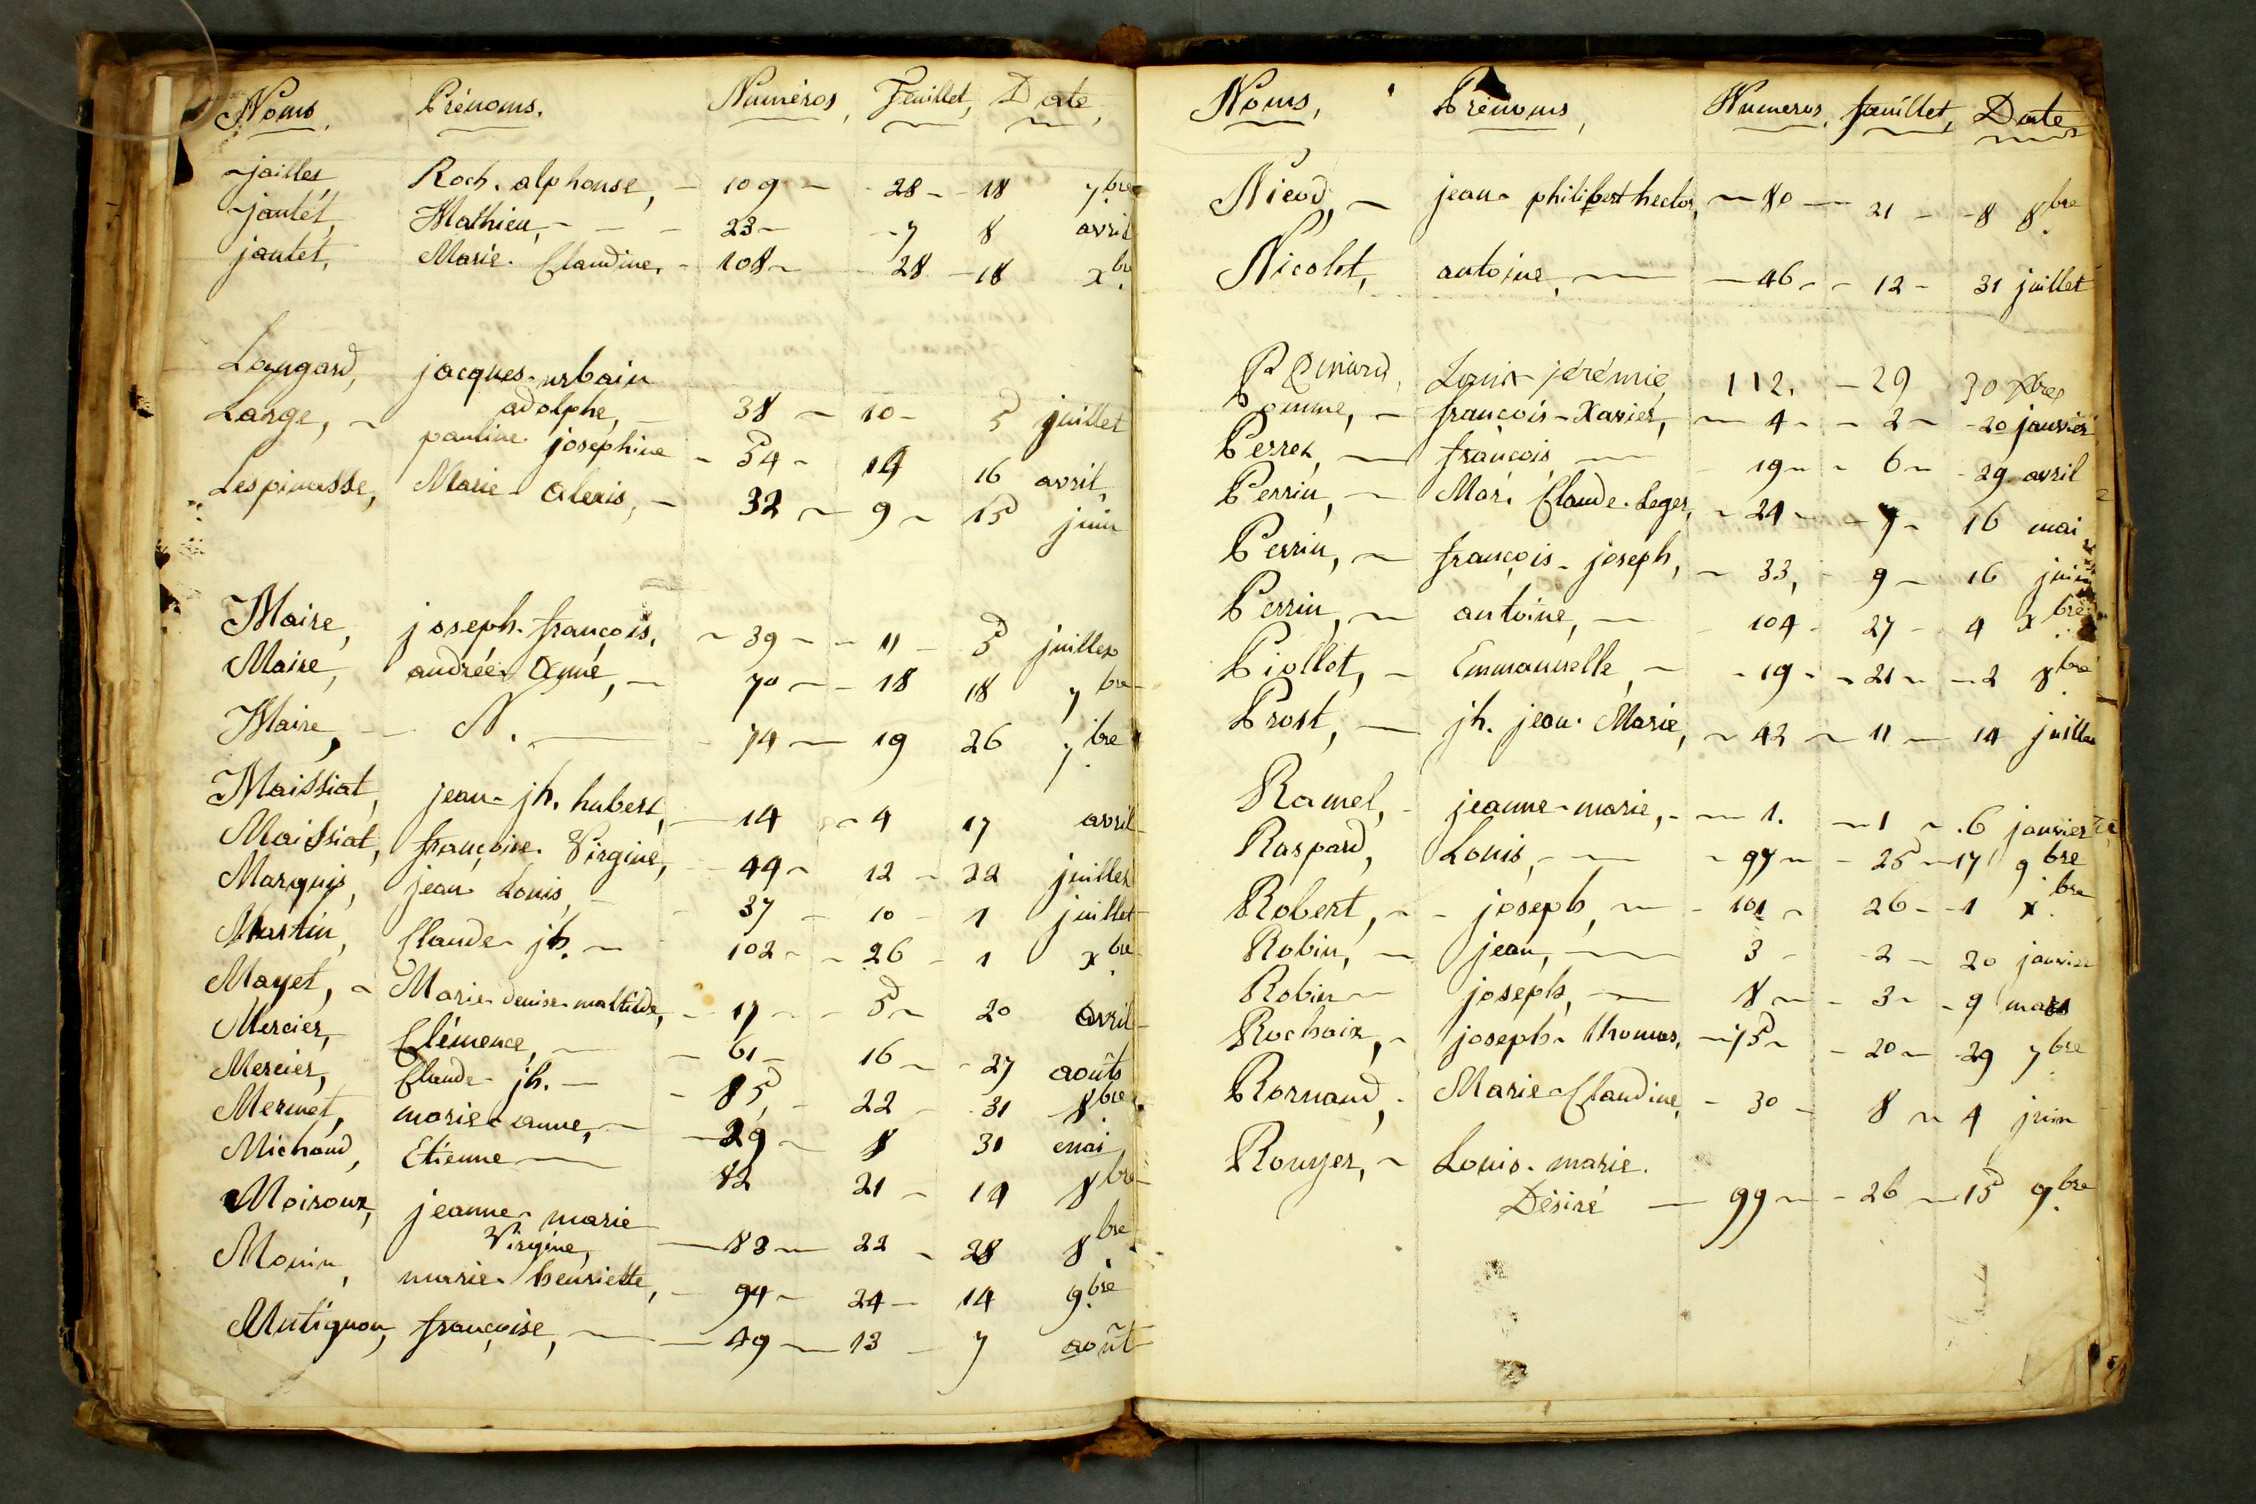 Noms, Prénoms. Numéros, Feuillet, Date,
jailles Roch. alphonse, - 109 - 28 - 18 7bre
jantét, Mathieu, - - - 23 - - 7 8 avril
jantet, Marie. Claudine, - 108 - 28 - 18 xbre
Longard, jacques-urbain
adolphe, 38 - 10 - 5 juillet
Large, - pauline josephine - 54 - 14 16 avril,
Lespinasse, Marie - alexis, - 32 - 9 - 15 juin
Maire, joseph. françois, - 39 - - 11 - 5 juillet
Maire, andrée Aymé, - 70 - - 18 18 7bre
Maire, - N. - 74 - 19 26 7bre
Maissiat, jean - jh. hubert, - 14 - 4 17 avril
Maissiat, françoise. Virginie, - 44 - 12 - 22 juillet
Marquis, jean Louis, - - 37 - 10 - 1 juillet
Martin, Claude - jh. - 102 - - 26 - 1 xbre
Mayet, - Marie denise mathilde, - 17 - - 5 - 20 avril
Mercier, Clémence, - - 61 - 16 - - 27 août
Mercier, Claude - jh. - - 85, - 22 - 31 8bre
Mermet, marie - anne, - - 29 - 8 31 mai
Michaud, Etienne - 82 21 - 14 8bre
Moiroux, jeanne - marie
Virginie, - 83 - 22 - 28 8bre
Monin, marie - henriette, - 94 - 24 - 14 9bre
Mutignon, françoise, - - 49 - 13 - 7 août
Noms, Prénoms, Numeros, feuillet, Date
Nicod, - jean - philibert hector, - 80 - 21 - - 8 8bre
Nicolet, antoine, - - 46 - - 12 - 31 juillet
Louis jérémie, 112. - 29 30 xbre
Pomme, - françois - Xavier, - 4 - - 2 - - 20 janvier
Perret, - françois, - 19 - - 6 - - 29 avril
Perrin, - Mar. Claude. Leger, - 24 - - 7 - 16 mai
Perrin, - françois - joseph, - 33, - 9 - 16 juin
Perrin, - antoine, - - 104 - 27 - 4 xbre
Piollet, - Emmanuelle, - - 19 - - 21 - - 2 8bre
Prost, - jh. jean. Marie, - 42 - 11 - 14 juillet
Ramel, - jeanne - marie, - - 1. - 1 - .6 janvier
Raspard, Louis, - - 97 - - 25 - 17 9bre
Robert, - - joseph, - - 101 - 26 - - 1 xbre
Robin, - jean, - 3 - - 2 - 20 janvier
Robin - joseph, - 8 - - 3 - - 9 mars
Rochaix, - joseph - thomas, - 75 - - 20 - - 29 7bre
Rornand, - Marie - Claudine, - 30 - 8 - 4 juin
Rouyer, - Louis. marie.
Désiré - 99 - - 26 - 15 9bre